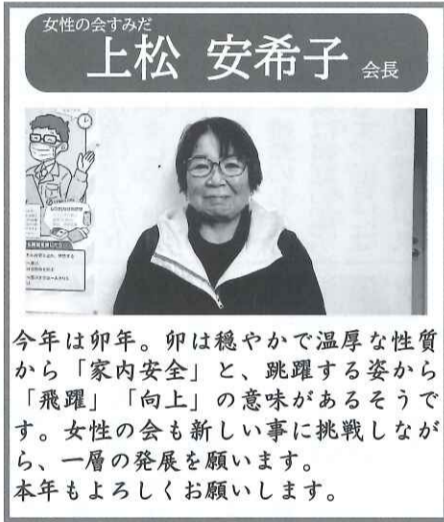 女性の会すみだ
上松 安希子 会長
今年は卯年。卯は穏やかで温厚な性質
から「家内安全」と、跳躍する姿から
「飛躍」「向上」の意味があるそうで
す。女性の会も新しい事に挑戦しなが
ら、一層の発展を願います。
本年もよろしくお願いします。